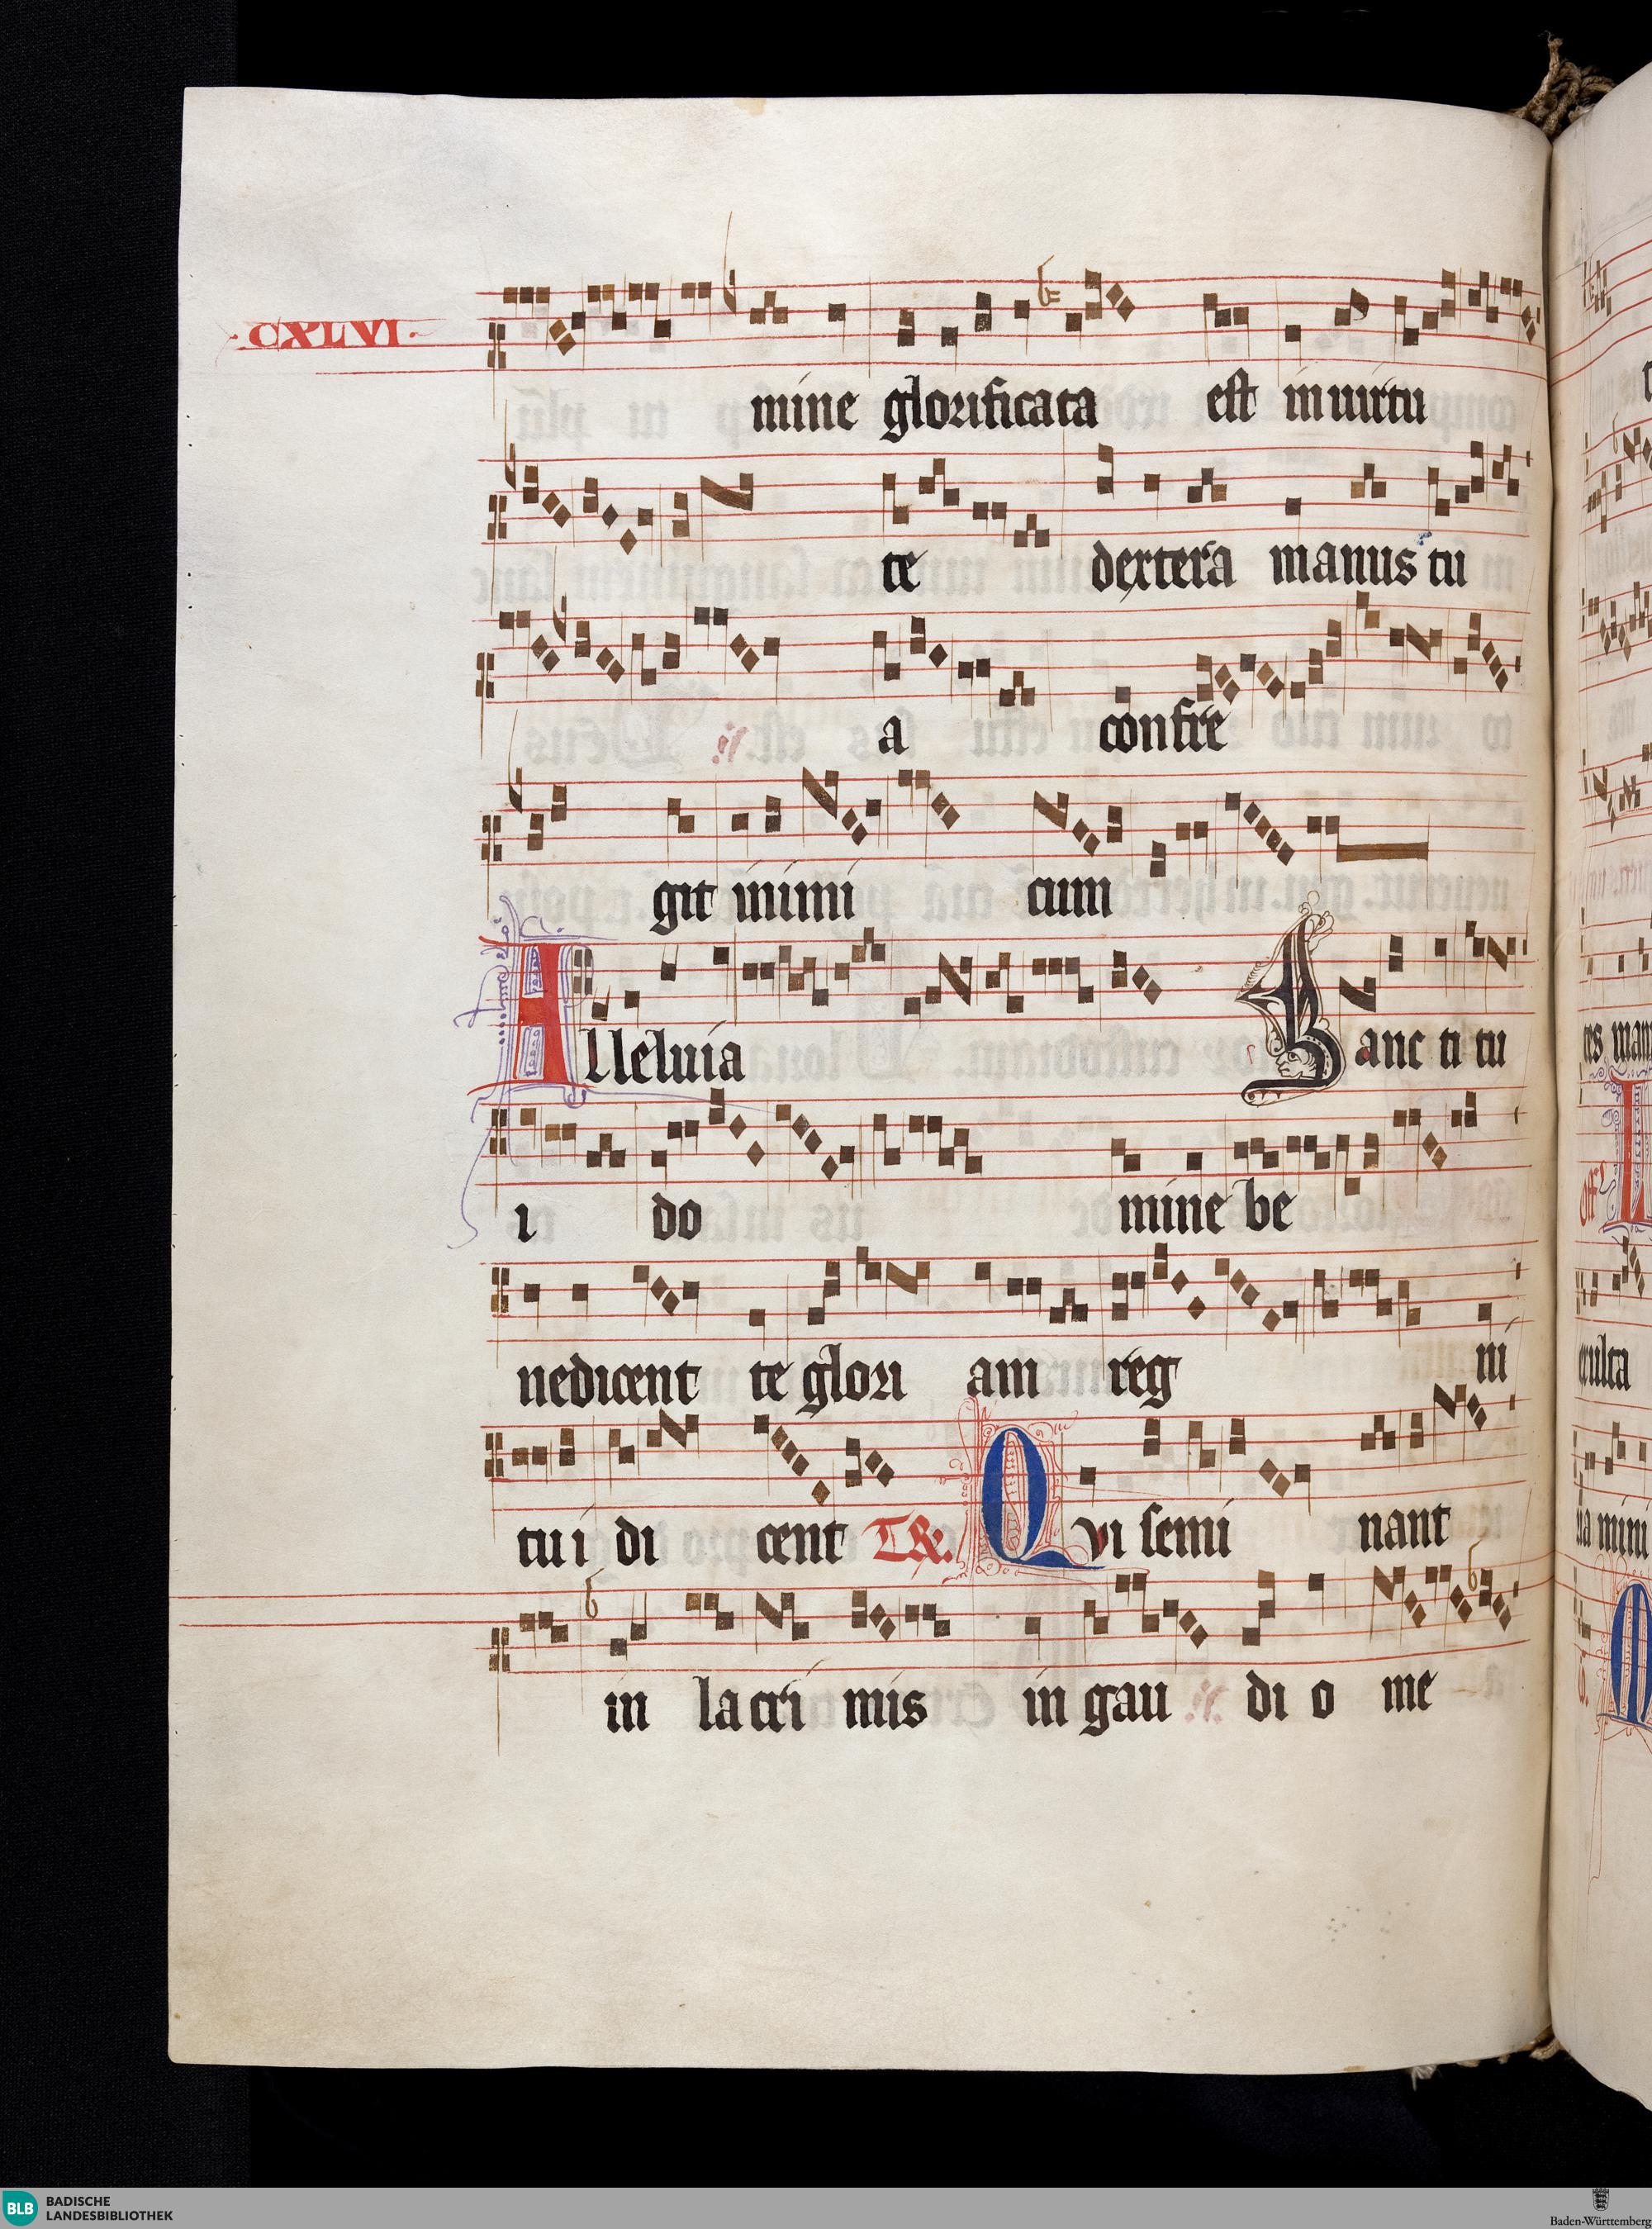 ·CXLVI·
mine glorificata est in uirtu
te dextera manus tu
a confre
git inimi cum
Alleluia Sanc ti tu
i do mine be
nedicent te glori am reg ni
tu i di cent TR. Qui semi nant
in la cri mis in gau di o me
BLB BADISCHE
LANDESBIBLIOTHEK
Baden-Württemberg